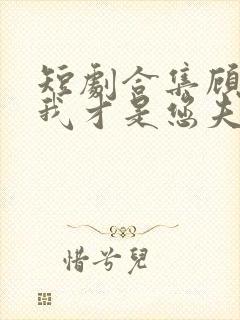 短劇合集顧
我才是您夫
惜兮兒